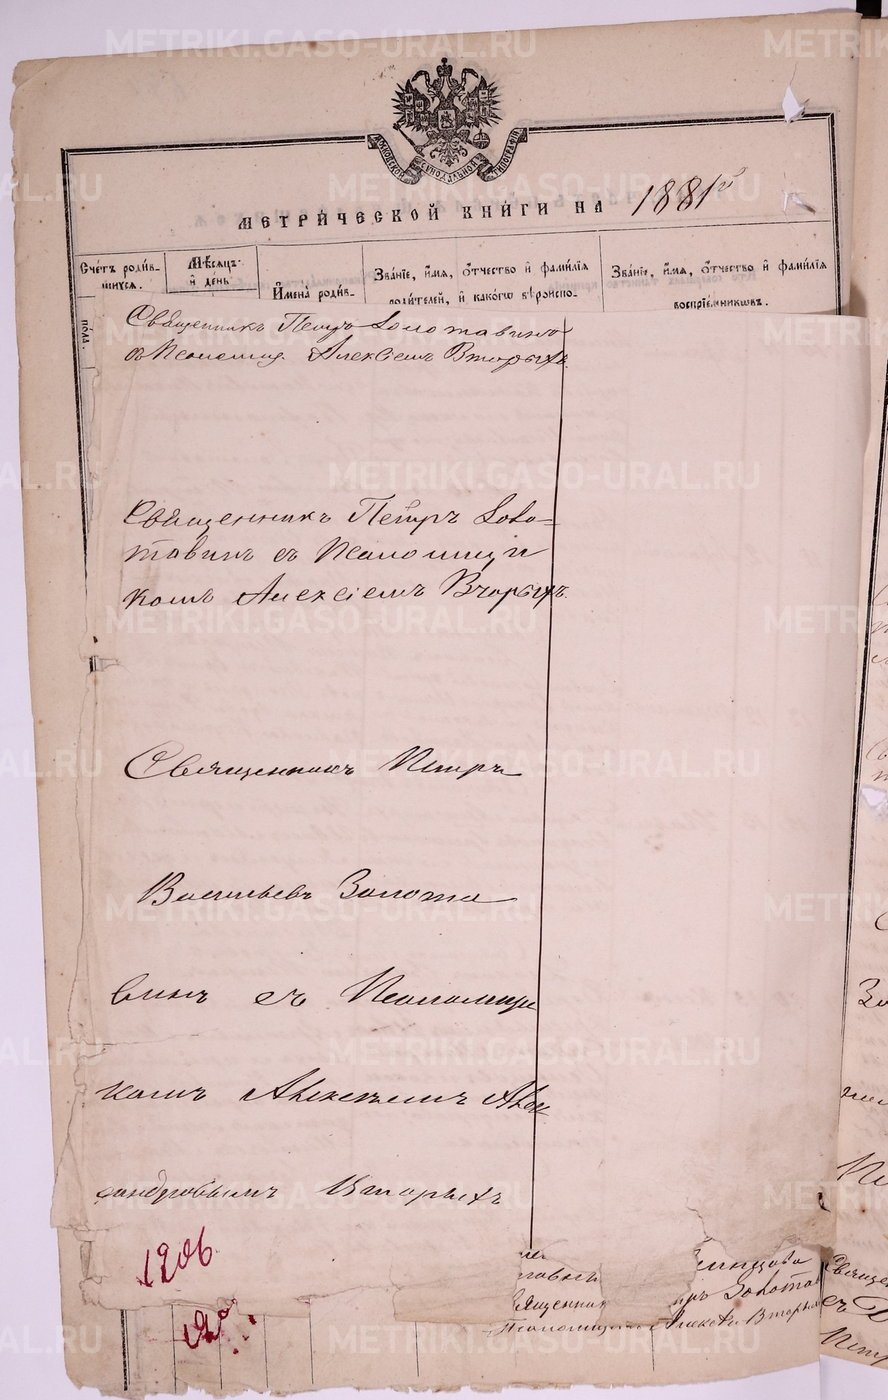 METRIKI.GASO-URAL.RU
МЕТРИЧЕСКОЙ КНИГИ НА 1881й
Счетъ родив-
шихся.
Мѣсяцъ
и день
Имена родив-
Званіе, имя, отчество и фамилія
родителей, и какого вѣроиспо-
Званіе, имя, отчество и фамилія
воспріемниковъ.
пола.
Священникъ Петръ Золотавинъ
съ Псаломщ. Алексѣемъ Вторыхъ.
Священникъ Петръ Золо=
тавинъ съ Псаломщи
комъ Алексіемъ Вторыхъ.
Священникъ Петръ
Васильевъ Золота
винъ съ Псаломщи
комъ Алексѣемъ Алек
сандровымъ Вторыхъ
1206
Священник
Золота
Псаломщи Алексѣй Вторых